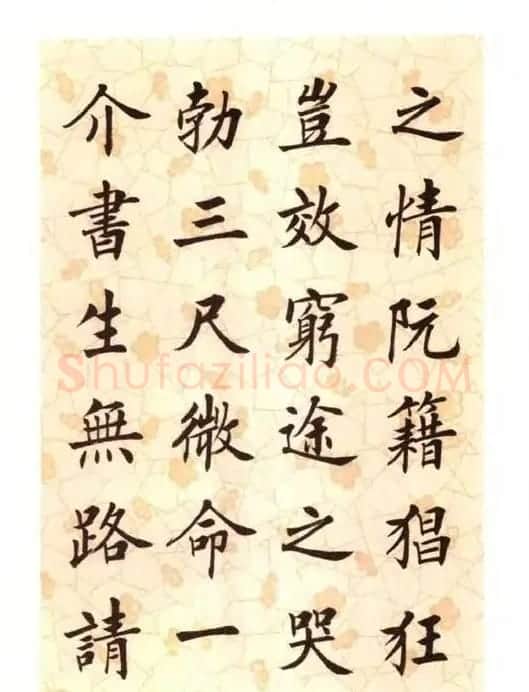 之情阮籍猖狂
豈效窮途之哭
勃三尺微命一
介書生無路請
Shufaziliao.COM